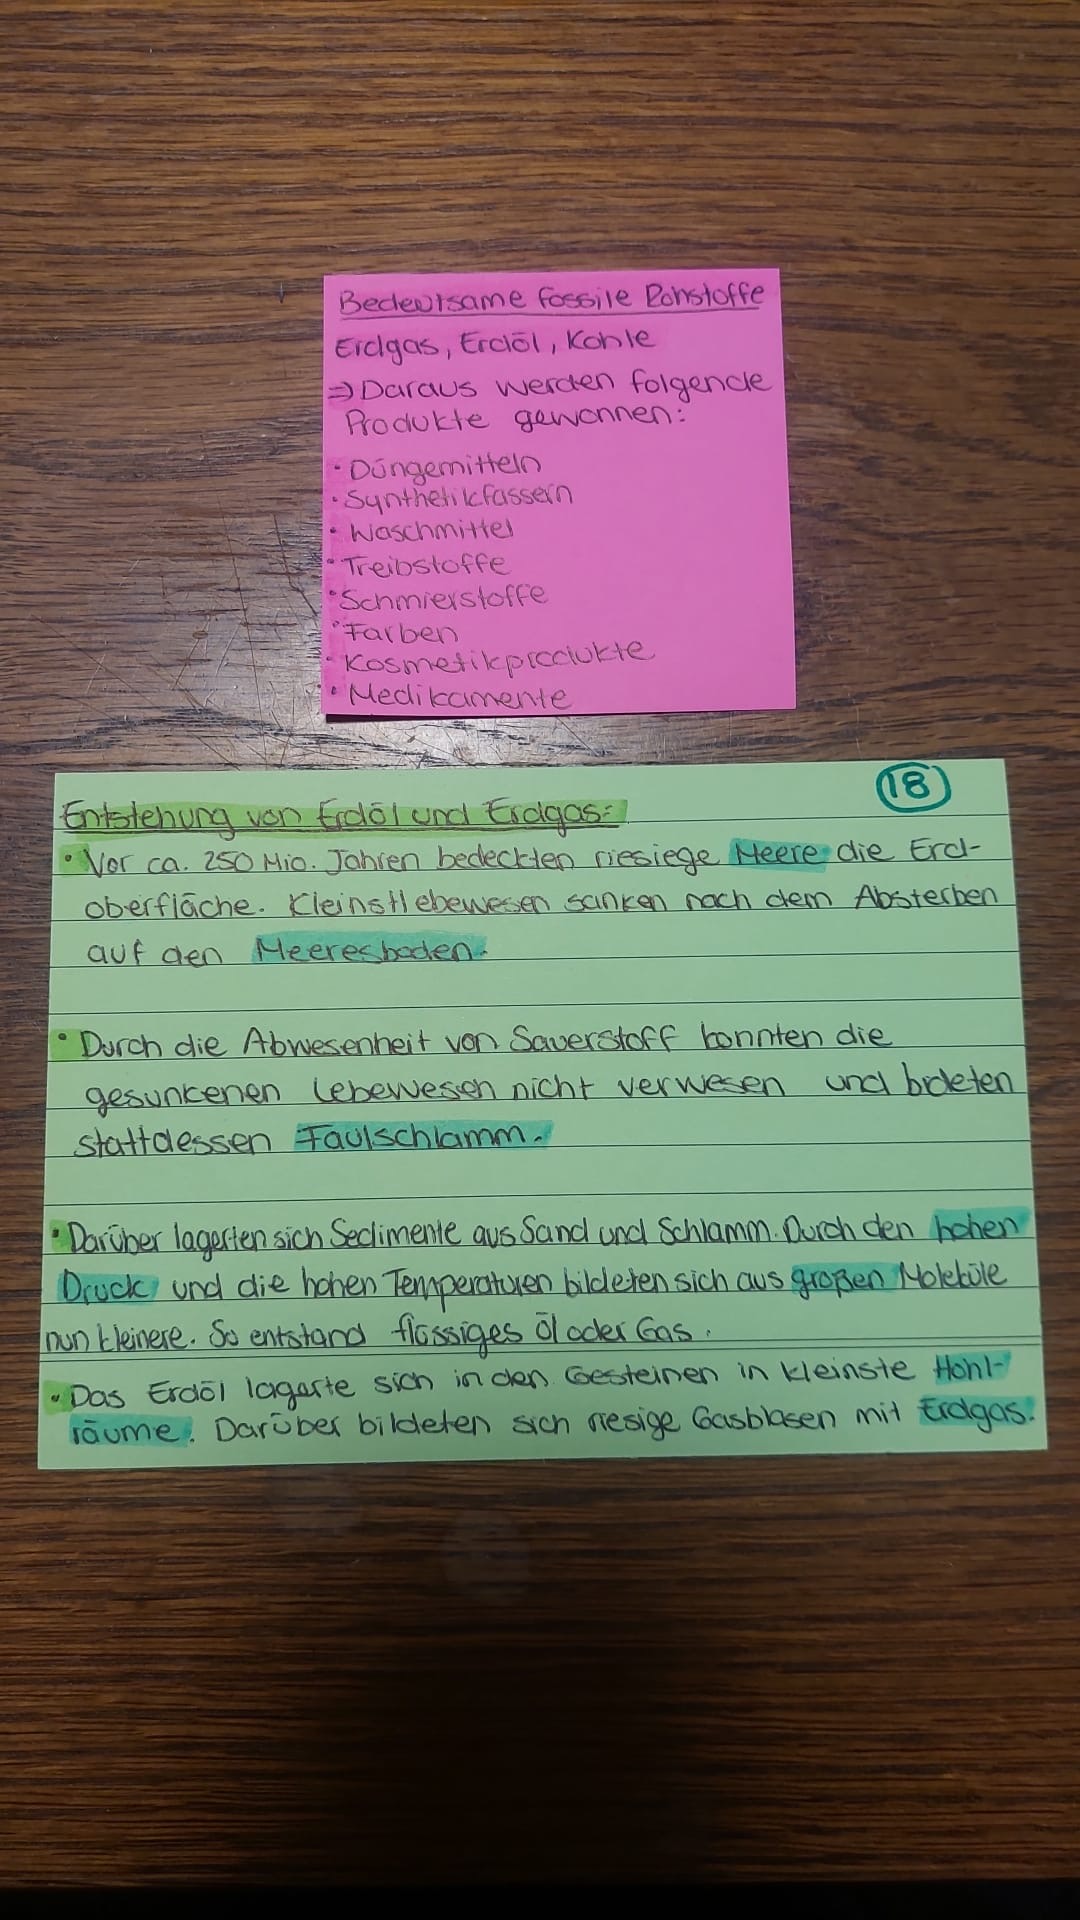 Bedeutsame fossile Rohstoffe
Erdgas, Erdöl, Kohle
=> Daraus werden folgende
Produkte gewonnen:
• Düngemitteln
• Synthetikfassern
• Waschmittel
• Treibstoffe
• Schmierstoffe
• Farben
• Kosmetikprodukte
• Medikamente
18
Entstehung von Erdöl und Erdgas:
• Vor ca. 250 Mio. Jahren bedeckten riesiege Meere die Erd-
oberfläche. Kleinstlebewesen sanken nach dem Absterben
auf den Meeresboden.
• Durch die Abwesenheit von Sauerstoff konnten die
gesunkenen Lebewesen nicht verwesen und bideten
stattdessen Faulschlamm.
• Darüber lagerten sich Sedimente aus Sand und Schlamm. Durch den hohen
Druck und die hohen Temperaturen bildeten sich aus großen Moleküle
nun kleinere. So entstand flüssiges Öl oder Gas.
• Das Erdöl lagerte sich in den Gesteinen in kleinste Hohl-
räume. Darüber bildeten sich riesige Gasblasen mit Erdgas.